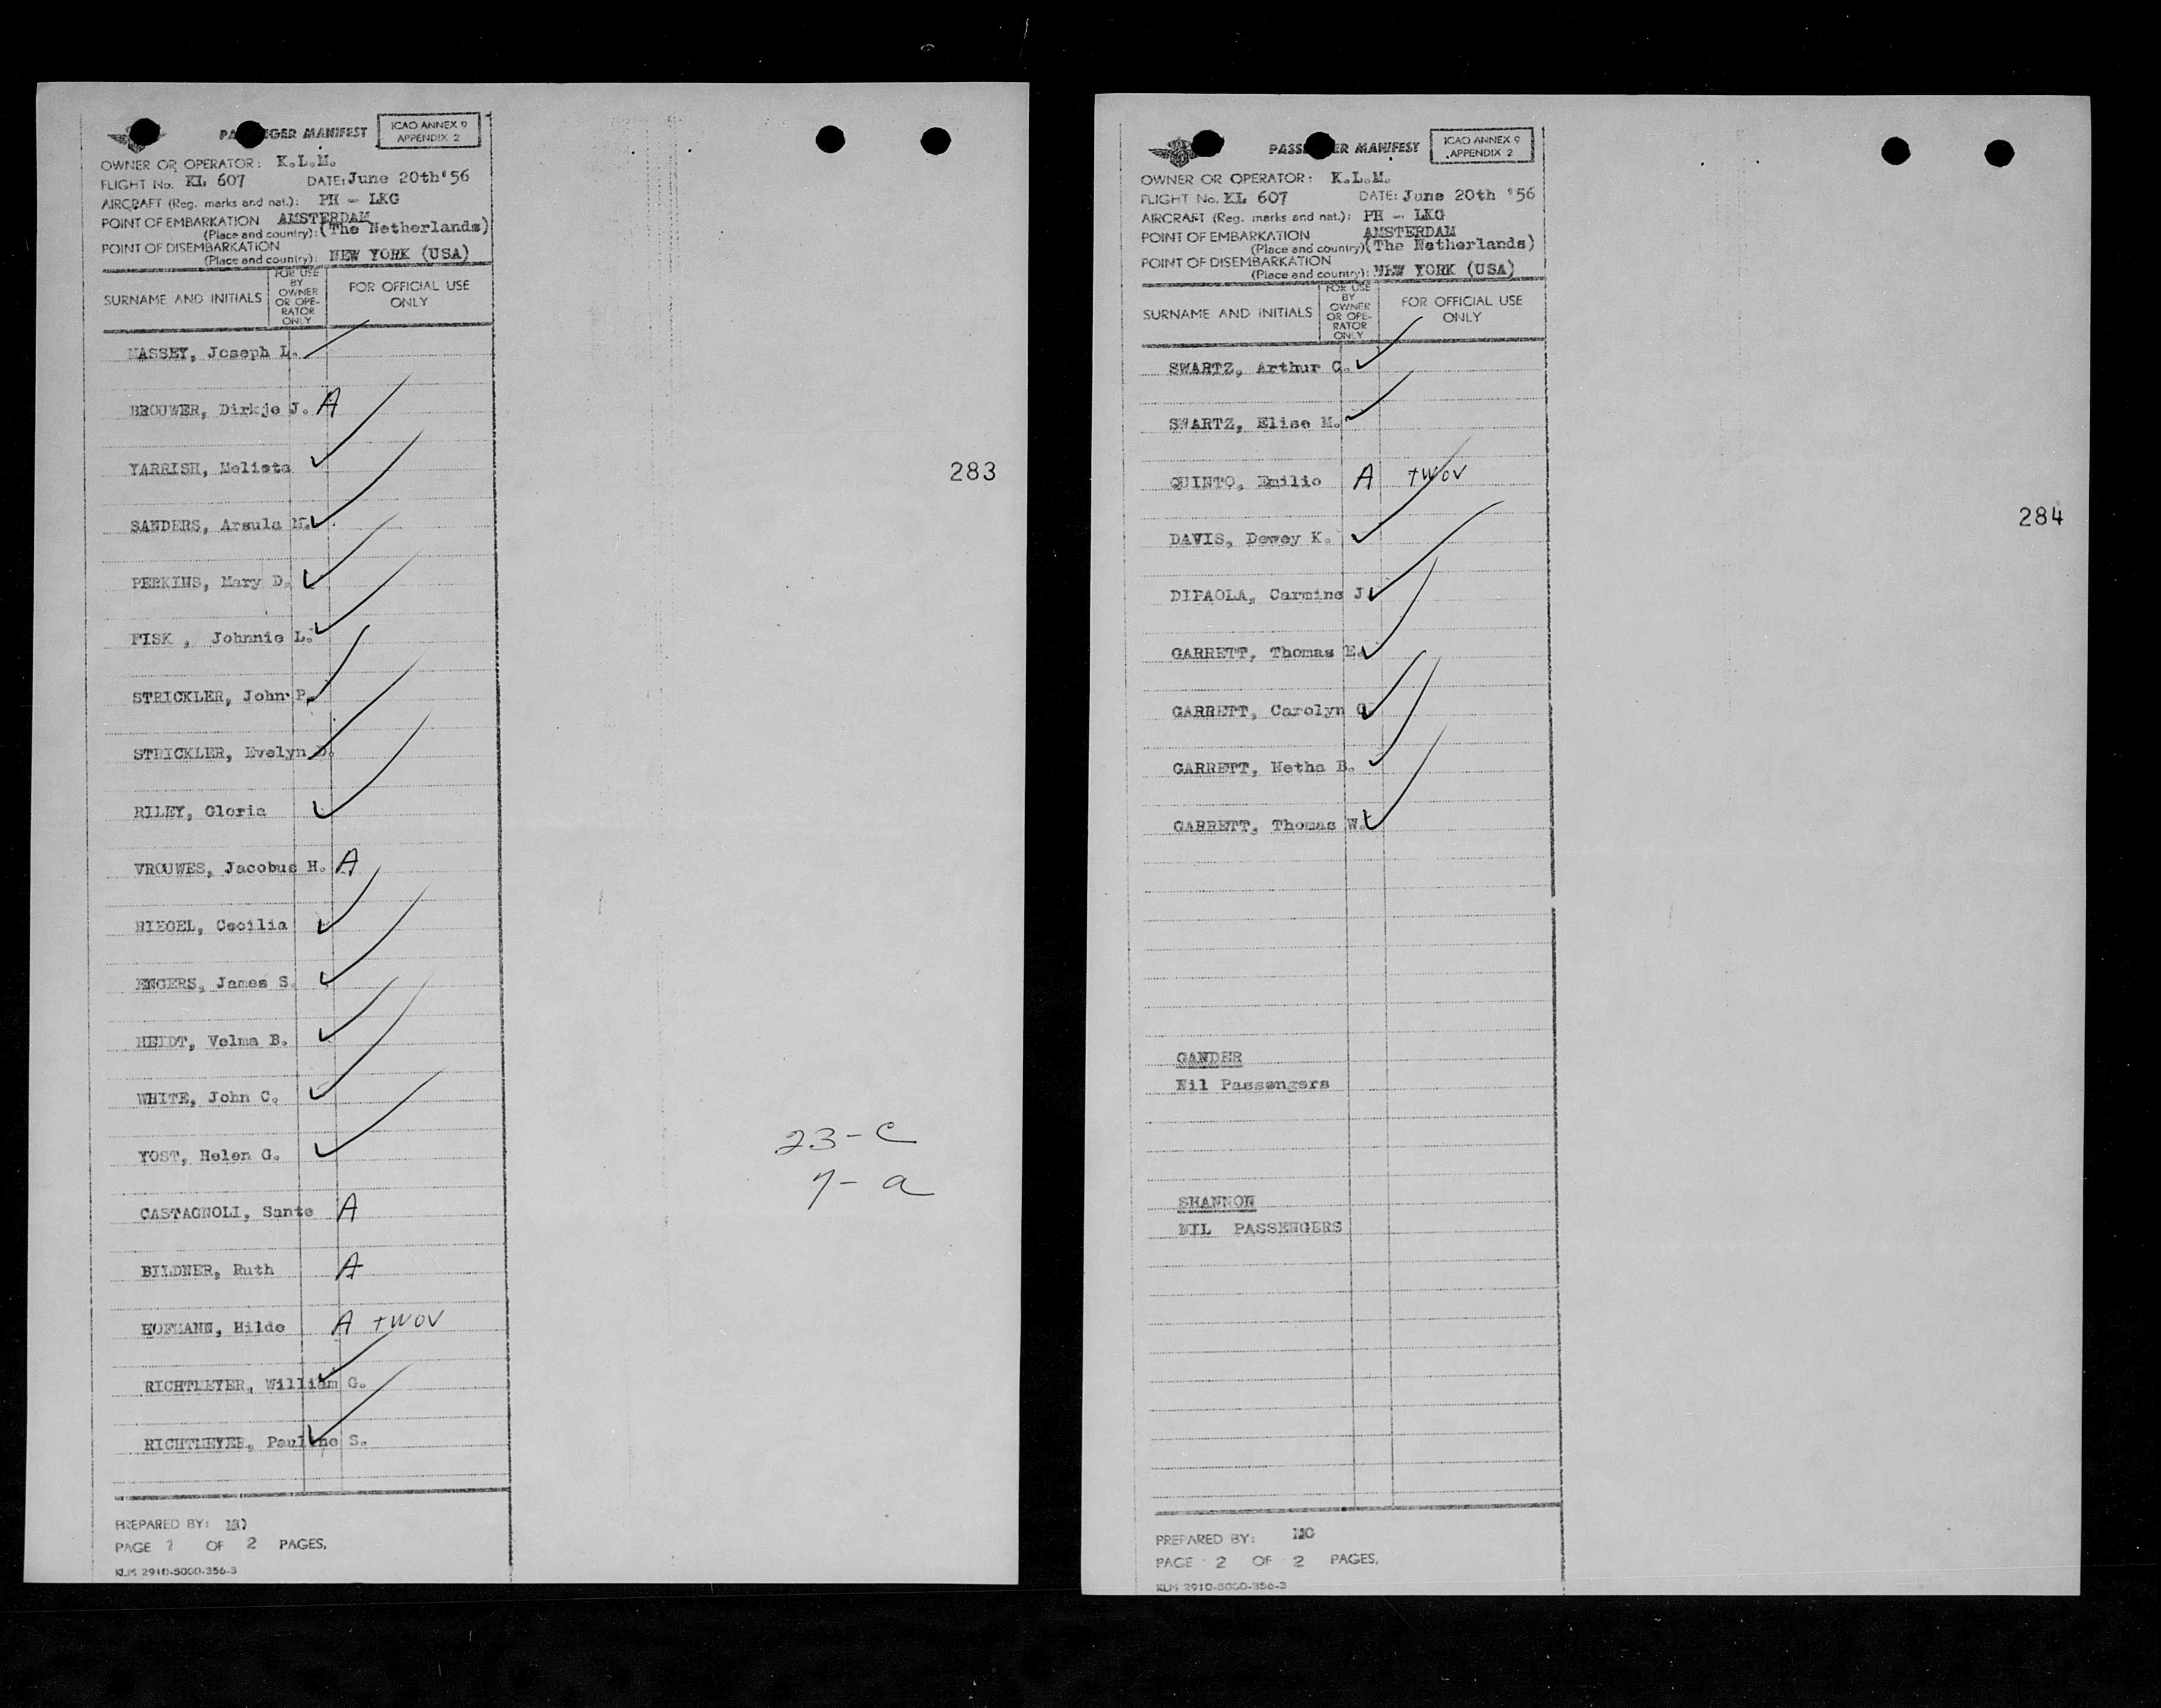 PASSENGER MANIFEST
ICAO ANNEX 9
APPENDIX 2
OWNER OR OPERATOR: K.L.M.
FLIGHT No. KL 607 DATE: June 20th '56
AIRCRAFT (Reg. marks and nat.): PH - LKG
POINT OF EMBARKATION AMSTERDAM
(Place and country): (The Netherlands)
POINT OF DISEMBARKATION
(Place and country): NEW YORK (USA)
SURNAME AND INITIALS
FOR USE
BY
OWNER
OR OPE-
RATOR
ONLY
FOR OFFICIAL USE
ONLY
MASSEY, Joseph L.
BROUWER, Dirkje J. A
YARRISH, Melista
SANDERS, Arsula M.
PERKINS, Mary D.
FISK , Johnnie L.
STRICKLER, John P.
STRICKLER, Evelyn D.
RILEY, Gloria
VROUWES, Jacobus H. A
RIEGEL, Cecilia
ENGERS, James S.
HEIDT, Velma B.
WHITE, John C.
YOST, Helen G.
CASTAGNOLI, Sante A
BILDNER, Ruth A
HOFMANN, Hilde A TWOV
RICHTMEYER, William G.
RICHTMEYER, Pauline S.
PREPARED BY:
PAGE 1 OF 2 PAGES.
KLM 2910-5000-356-3
283
23-C
7-a
PASSENGER MANIFEST
ICAO ANNEX 9
APPENDIX 2
OWNER OR OPERATOR: K.L.M.
FLIGHT No. KL 607 DATE: June 20th '56
AIRCRAFT (Reg. marks and nat.): PH - LKG
POINT OF EMBARKATION AMSTERDAM
(Place and country) (The Netherlands)
POINT OF DISEMBARKATION
(Place and country): NEW YORK (USA)
SURNAME AND INITIALS
FOR USE
BY
OWNER
OR OPE-
RATOR
ONLY
FOR OFFICIAL USE
ONLY
SWARTZ, Arthur C.
SWARTZ, Elise M.
QUINTO, Emilio A TWOV
DAVIS, Dewey K.
DIPAOLA, Carmine J.
GARRETT, Thomas E.
GARRETT, Carolyn
GARRETT, Netha B.
GARRETT, Thomas W.
GANDER
Nil Passengers
SHANNON
NIL PASSENGERS
PREPARED BY:
PAGE 2 OF 2 PAGES.
KLM 2910-5000-356-3
284